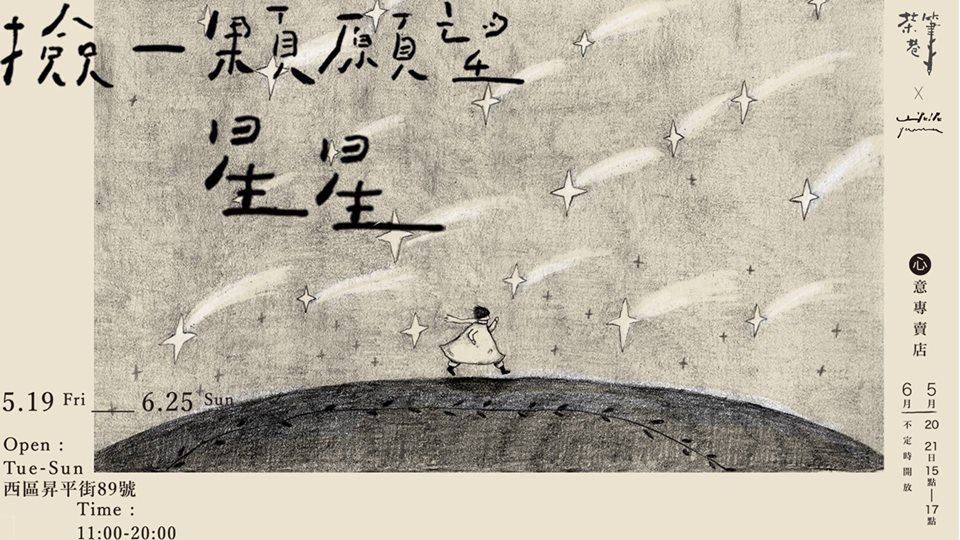 撿一顆願望
星星
筆
茶巷
X
心意專賣店
5月20 21日15點—17點
6月不定時開放
5.19 Fri — 6.25 Sun
Open :
Tue-Sun
西區昇平街89號
Time :
11:00-20:00